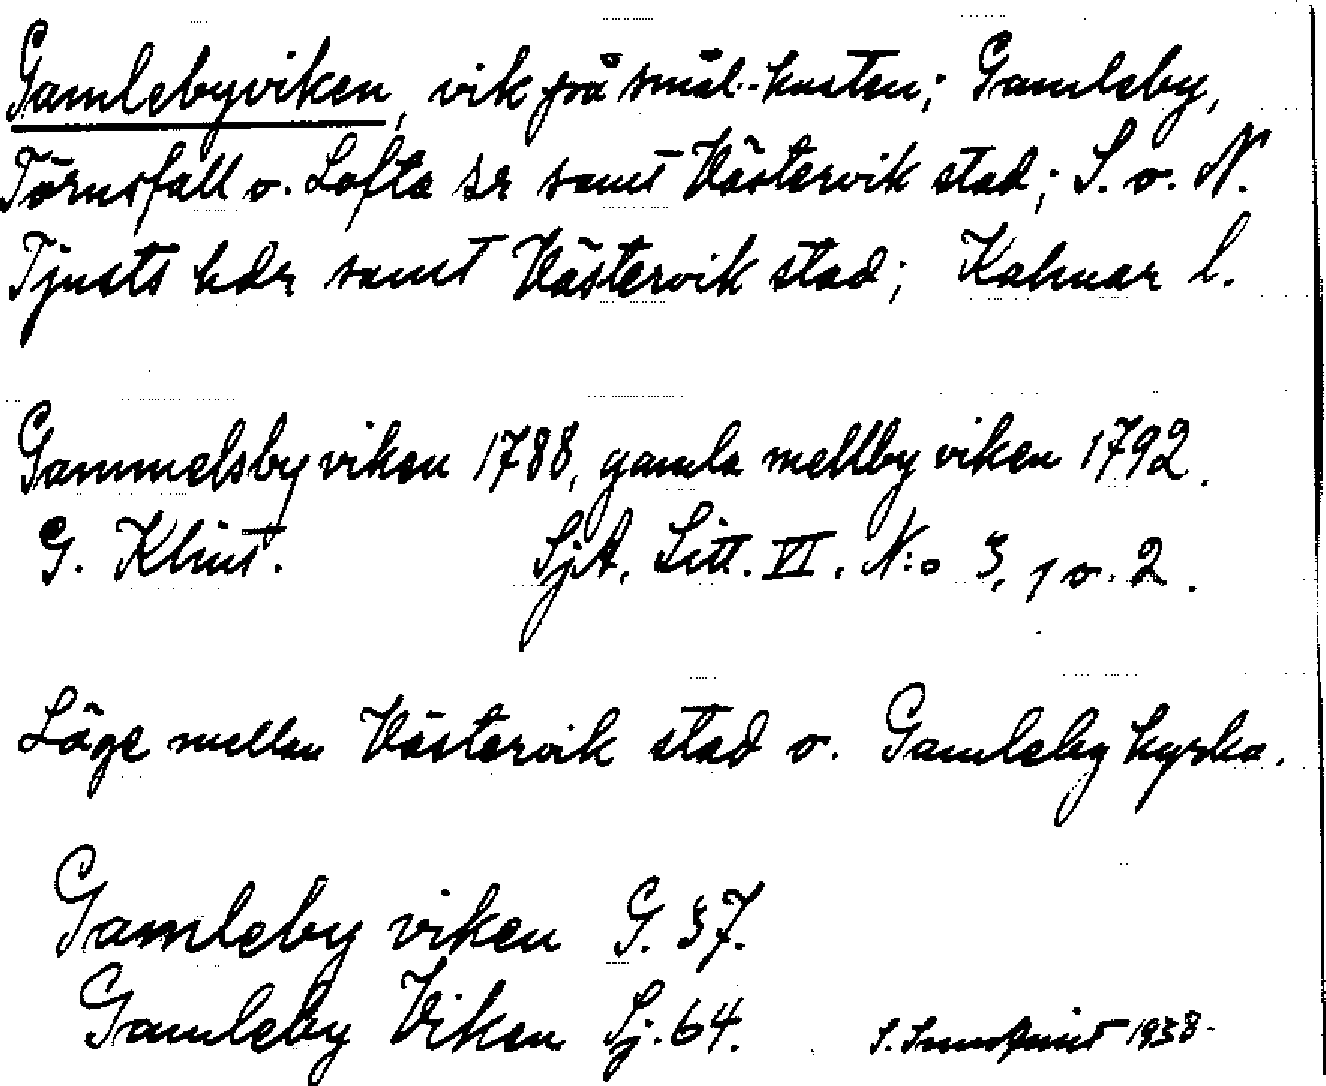 Gamlebyviken, vik på smål. kusten; Gamleby,
Törnsfall o. Lofta sr samt Västervik stad; S. o. N.
Tjusts hdr samt Västervik stad; Kalmar l.
Gammelsby viken 1788, gamla mellby viken 1792.
G. Klint. SjA. Litt. VI. N:o 3, 1 o. 2.
Läge mellan Västervik stad o. Gamleby kyrka.
Gamleby viken G. 37.
Gamleby Viken Sj. 64. 1938